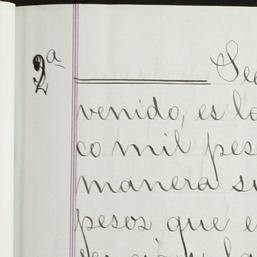 2ª Se
venido, es lo
co mil pes
manera su
pesos que e